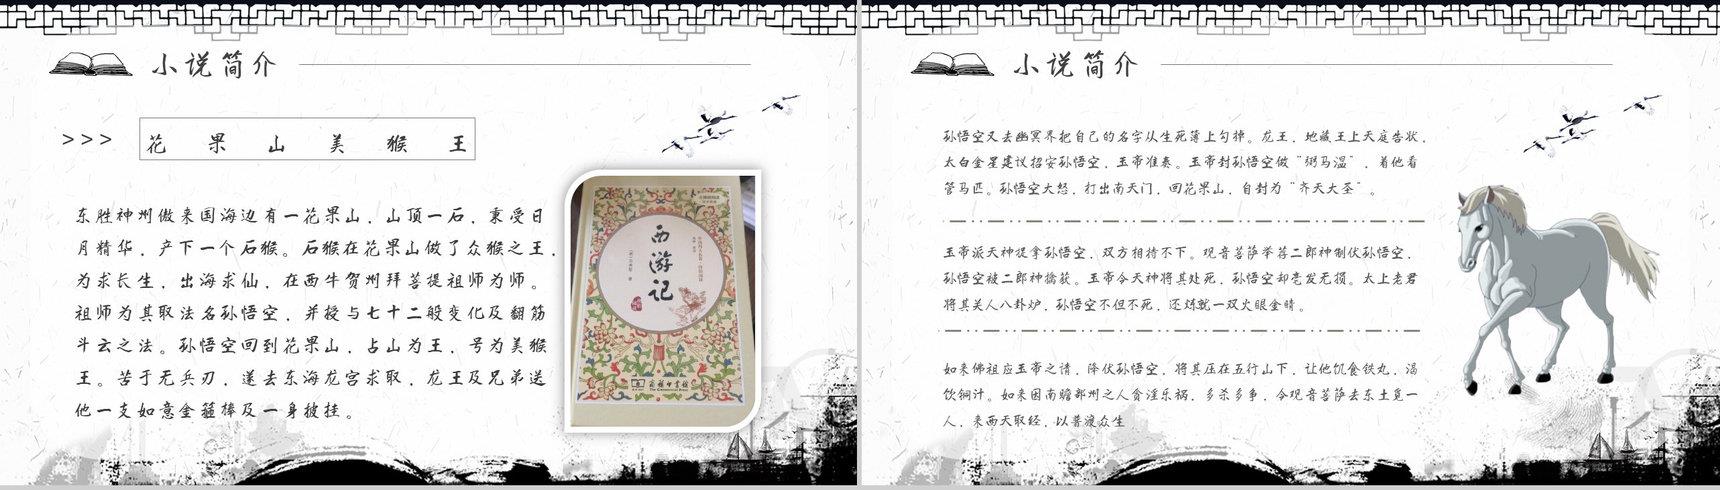 小说简介
>>> 花果山美猴王
东胜神州傲来国海边有一花果山，山顶一石，秉受日
月精华，产下一个石猴。石猴在花果山做了众猴之王，
为求长生，出海求仙，在西牛贺州拜菩提祖师为师。
祖师为其取法名孙悟空，并授与七十二般变化及翻筋
斗云之法。孙悟空回到花果山，占山为王，号为美猴
王。苦于无兵刃，遂去东海龙宫求取，龙王及兄弟送
他一支如意金箍棒及一身披挂。
西游记
商务印书馆
The Commercial Press
小说简介
孙悟空又去幽冥界把自己的名字从生死簿上勾掉。龙王，地藏王上天庭告状，
太白金星建议招安孙悟空，玉帝准奏。玉帝封孙悟空做“弼马温”，着他看
管马匹。孙悟空大怒，打出南天门，回花果山，自封为“齐天大圣”。
玉帝派天神捉拿孙悟空，双方相持不下。观音菩萨举荐二郎神制伏孙悟空，
孙悟空被二郎神擒获。玉帝令天神将其处死，孙悟空却毫发无损。太上老君
将其关入八卦炉，孙悟空不但不死，还炼就一双火眼金睛。
如来佛祖应玉帝之请，降伏孙悟空，将其压在五行山下，让他饥食铁丸，渴
饮铜汁。如来因南瞻部州之人贪淫乐祸，多杀多争，令观音菩萨去东土觅一
人，来西天取经，以普渡众生